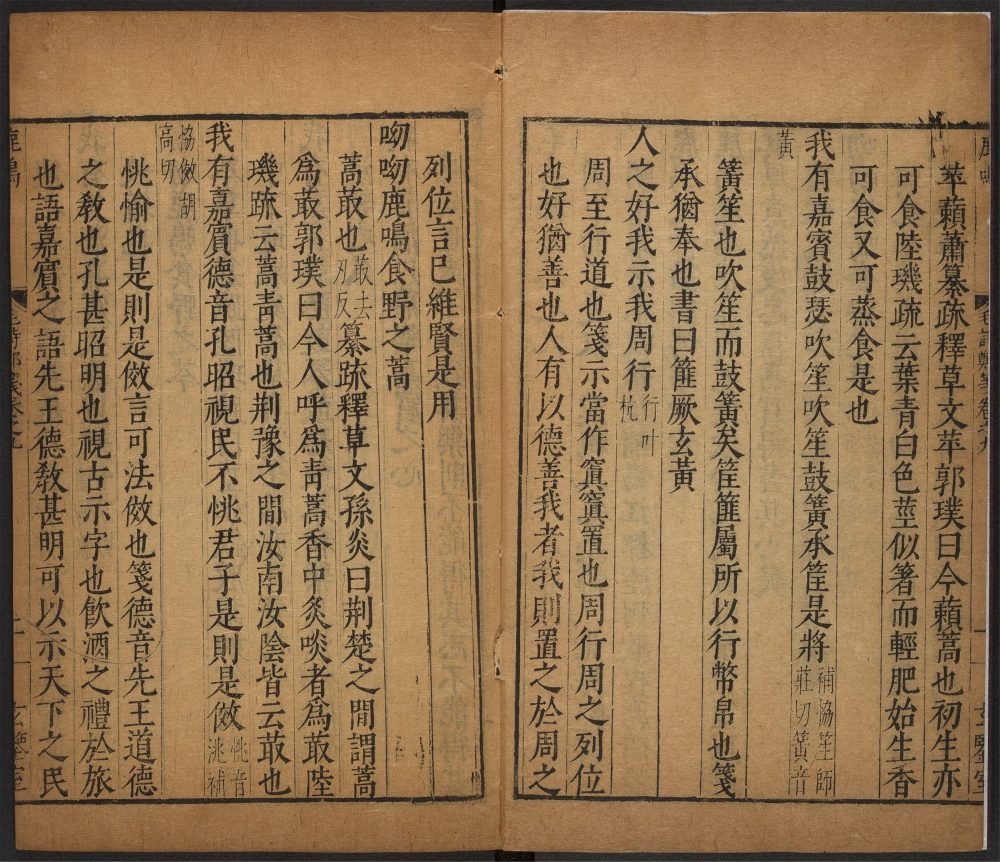 苹藾蕭纂疏釋草文苹郭璞曰今藾蒿也初生亦
可食陸璣疏云葉青白色莖似箸而輕肥始生香
可食又可蒸食是也
我有嘉賓鼓瑟吹笙吹笙鼓簧承筐是將補協笙師莊切簧音
黃
簧笙也吹笙而鼓簧矣筐篚屬所以行幣帛也箋
承猶奉也書曰篚厥玄黃
人之好我示我周行行叶杭
周至行道也箋示當作寘寘置也周行周之列位
也好猶善也人有以德善我者我則置之於周之
列位言己維賢是用
呦呦鹿鳴食野之蒿
蒿菣也菣去刃反纂疏釋草文孫炎曰荆楚之間謂蒿
爲菣郭璞曰今人呼爲靑蒿香中炙啖者爲菣陸
璣疏云蒿靑蒿也荆豫之間汝南汝陰皆云菣也
我有嘉賓德音孔昭視民不恌君子是則是傚恌音洮補
協傚胡高切
恌愉也是則是傚言可法傚也箋德音先王道德
之敎也孔甚昭明也視古示字也飮酒之禮於旅
也語嘉賓之語先王德敎甚明可以示天下之民
鹿鳴